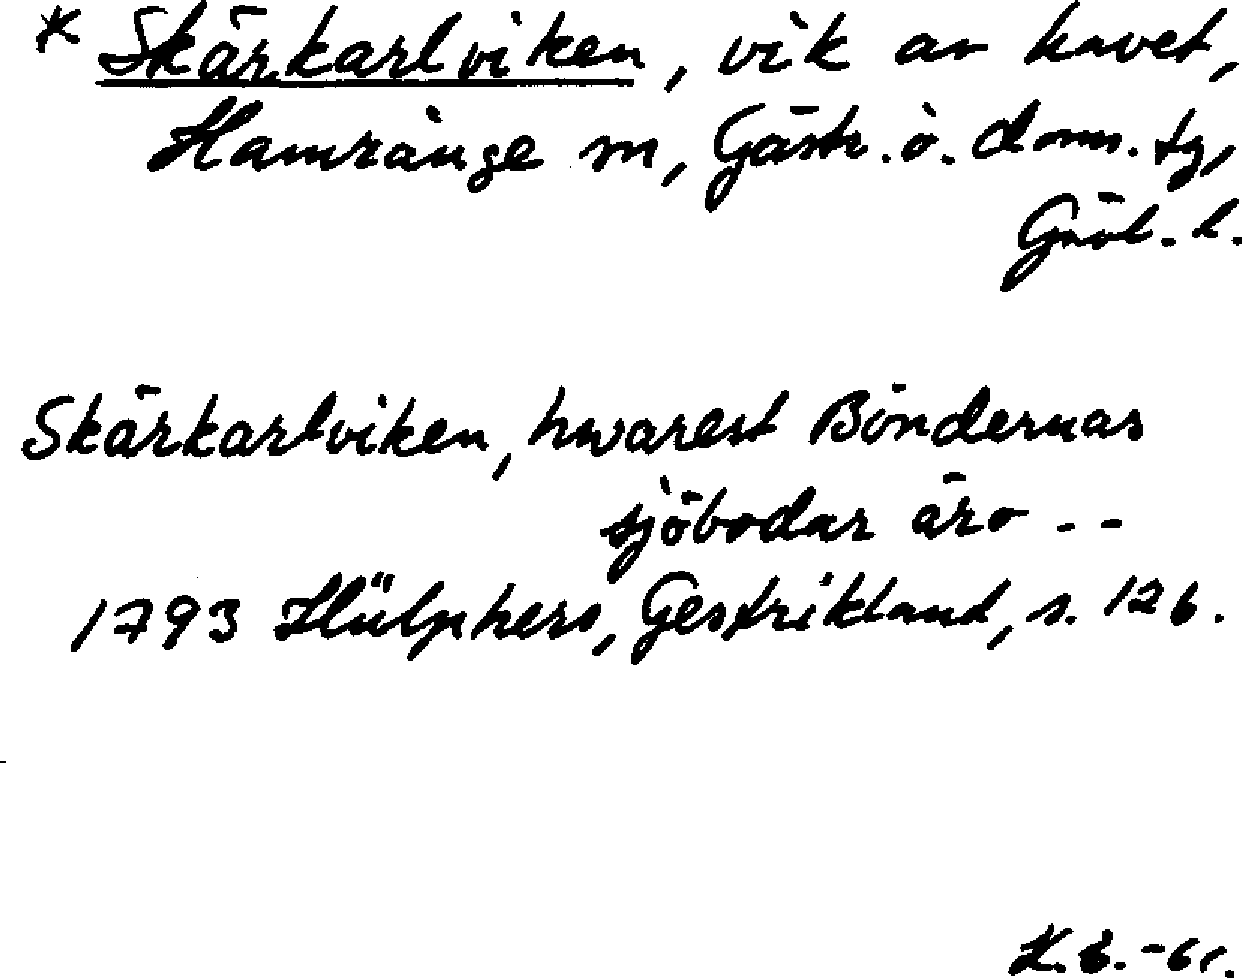 * Skärkarlviken, vik av havet,
Hamrånge sn, Gästr. ö. doms. tg,
Gävl. l.
Skärkarlviken, hwarest Böndernas
sjöbodar äro --
1793 Hülphers, Gestrikland, s. 126.
-61.